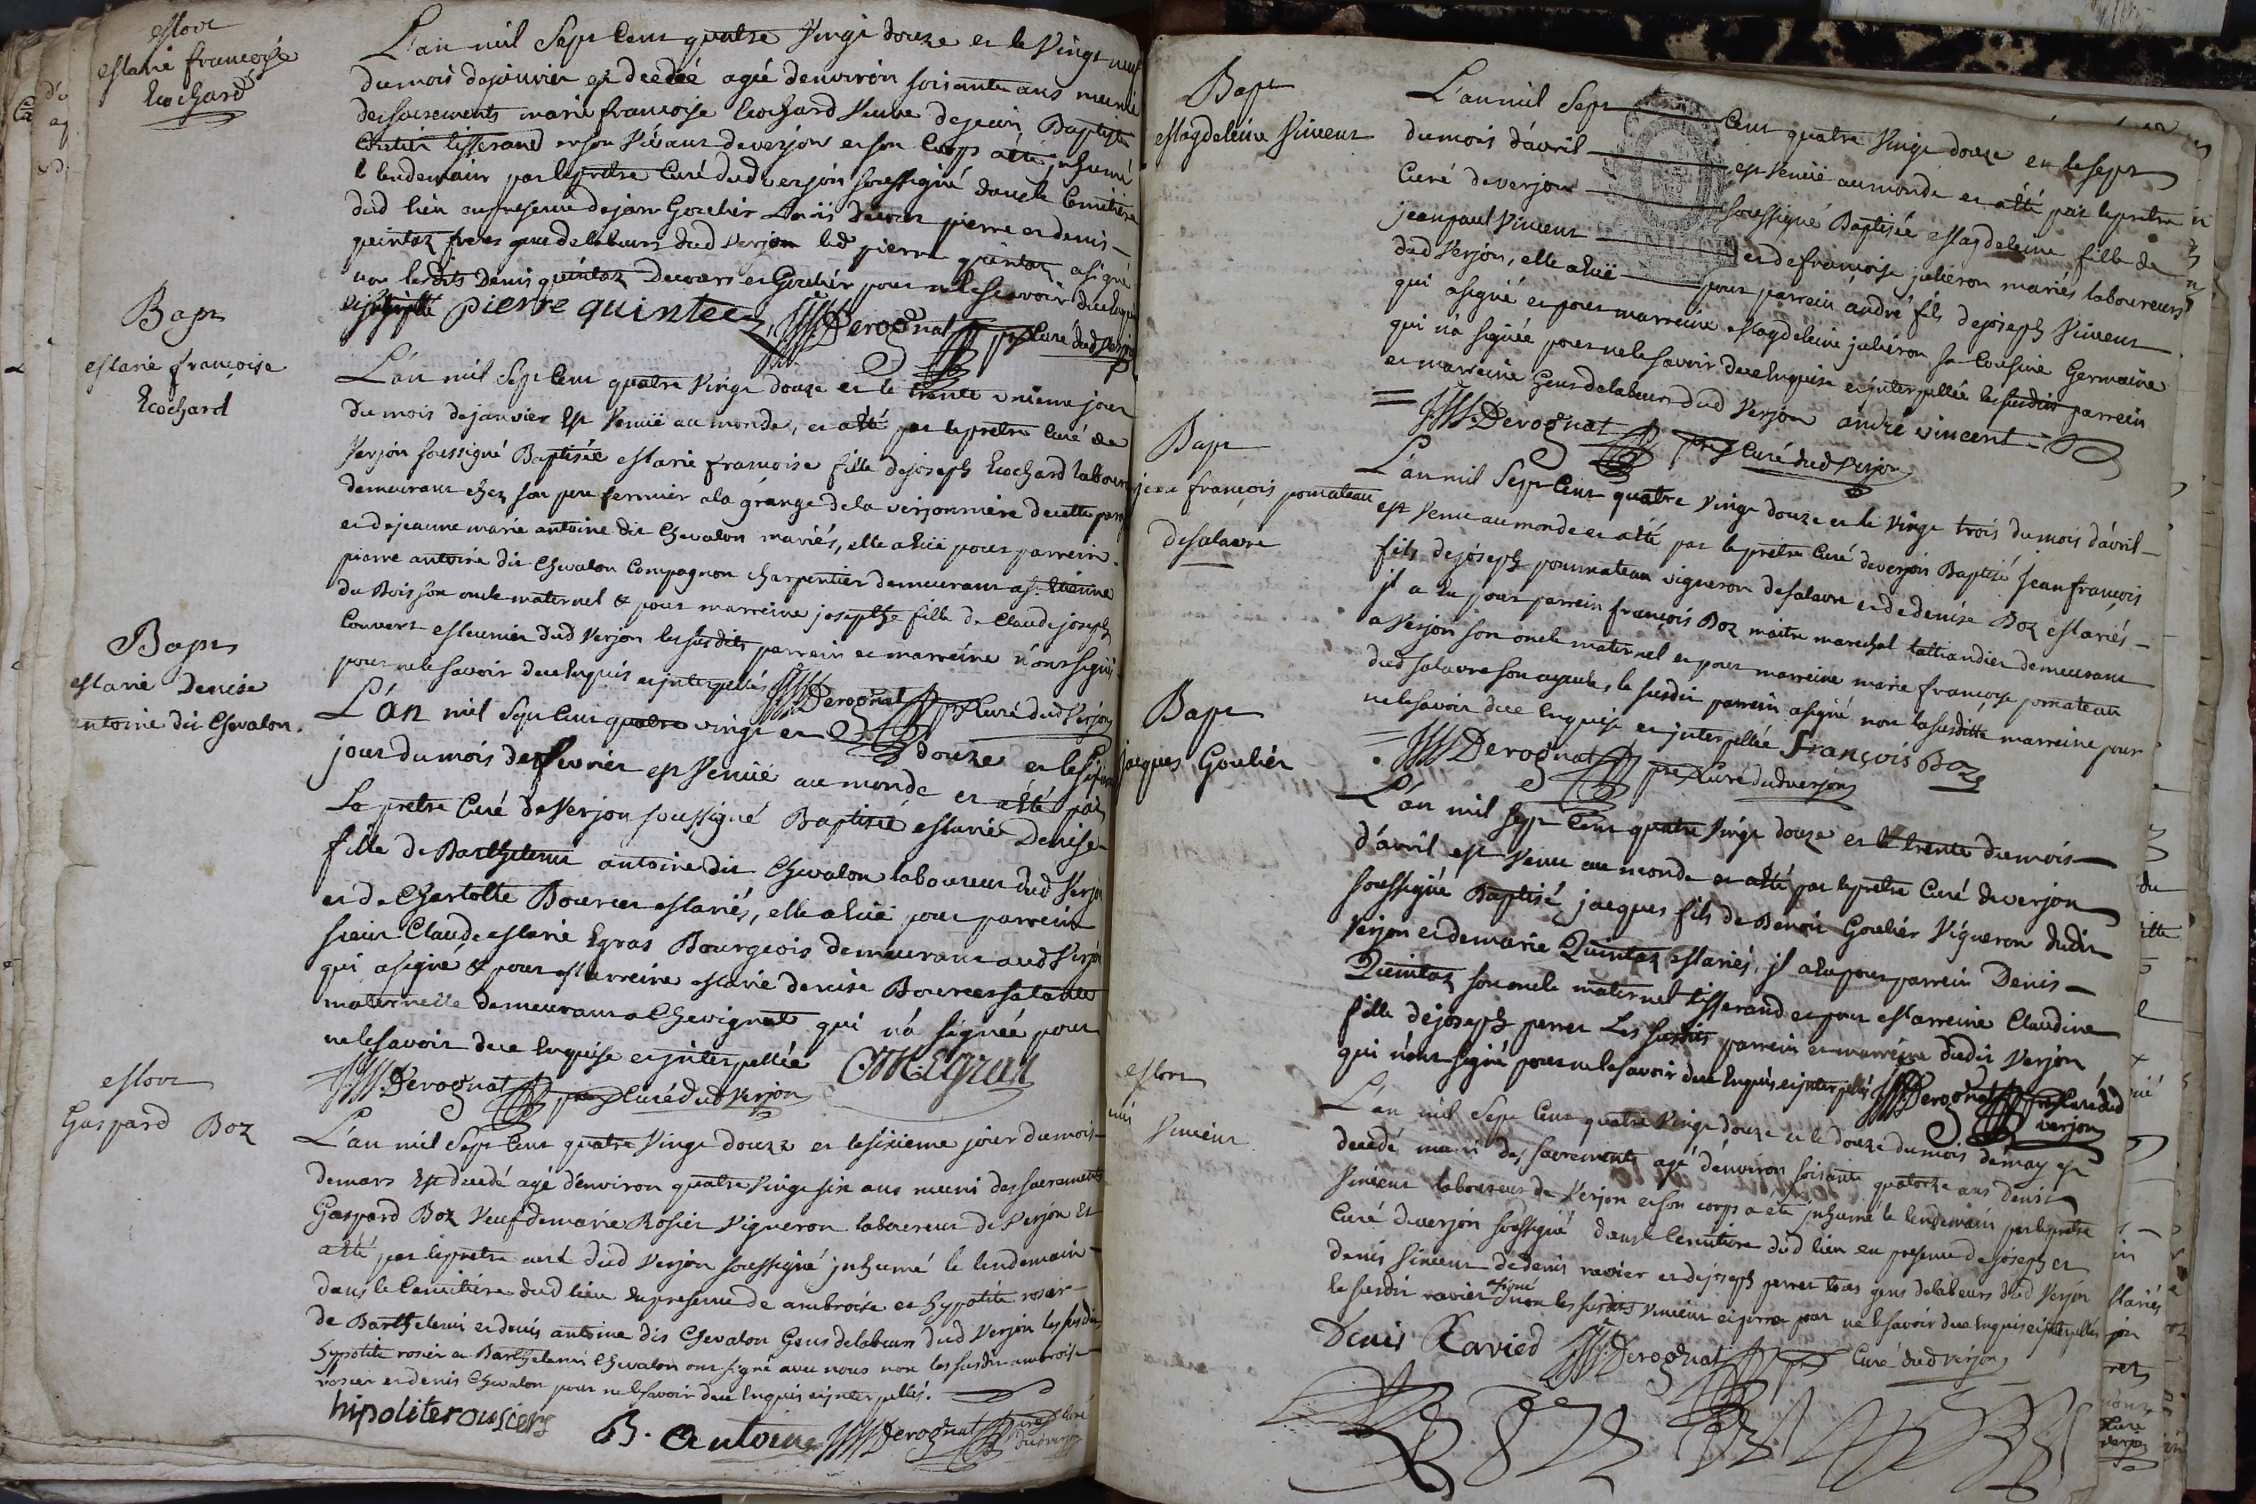 Mort
Marie francoise
Ecochard
L'an mil Sept Cent quatre Vingt douze et le Vingt neuf
du mois de janvier est decedeé ageé denviron soisante ans munie
des sacrements marie francoise Ecochard Veuve de jean Baptiste
tisserand en son Vivant de verjon et son Corps a été inhumé
le lendemain par le prêtre Curé dud verjon soussigné dans le Cemitiére
dud lieu en presence de jean Goulier Denis pierre et denis
quintaz freres gens de labeurs dud verjon led pierre quintaz a signé
non lesdits Denis quintaz et Goulier pour ne le scavoir de ce enquis
pierre quintaz Derognat prêtre Curé dud verjon
Bapt
Marie françoise
Ecochard
L'an mil Sept Cent quatre Vingt douze et le trente unieme jour
du mois de janvier Est Venuë au monde, et a été par le prêtre Curé de
Verjon soussigné Baptiséé Marie francoise fille de joseph Ecochard labour
demeurant chez son pere fermier a la grange de la verjonniere de cette paro
et de jeanne marie antoine dit Chevalon mariés, elle a euë pour parrein
pierre antoine dit Chevalon Compagnon charpentier demeurant a st. Etienne
du Bois son oncle maternel & pour marreine josephte fille de Claude joseph
Convert Meunier dud Verjon les susdits parrein et marreine n'ont signés
pour ne le savoir de ce enquis et interpellés Derognat prêtre Curé dud Verjon
Bapt
Marie Denise
antoine dit Chevalon.
L'an mil Sept Cent quatre vingt et douze et le
jour du mois de fevrier est Venuë au monde et a été par
Le prêtre Curé de Verjon soussigné Baptisée Marie Denise
fille de Barthelemi antoine dit Chevalon laboureur dud Verjon
et de Charlotte Bourcer Mariés, elle a euë pour parrein
sieur Claude Marie Egras Bourgeois demeurant aud Verjon
qui a signé & pour Marreine Marie denise Bourcer sa tante
maternelle demeurant a Chevignat qui n'a signée pour
ne le savoir de ce enquise et interpellée CM Egras
Derognat prêtre Curé dud Verjon
Mort
Gaspard Boz
L'an mil Sept Cent quatre Vingt douze et le sixieme jour du mois
de mars Est decedé agé d'environ quatre Vingt six ans muni des sacrements
Gaspard Boz Veuf de marie Rosier Vigneron laboureur de Verjon Et
a été par le prêtre curé dud Verjon soussigné inhumé le lendemain
dans le Cemitiére dud lieu en presence de ambroise et hypolite rosier
de Barthelemi et denis antoine dit Chevalon Gens de labeurs dud Verjon les susdits
hypolite rosier et Barthelemi Chevalon ont signé avec nous non les susdits ambroise
rosier et denis Chevalon pour ne le savoir de ce enquis et interpellés.
hipolite rousier B. antoine Derognat prêtre Curé dud verjon
Bapt
Magdeleine Vincent
L'an mil Sept Cent quatre Vingt douze et le sept
du mois d'avril est Venuë au monde et a été par le prêtre
Curé de verjon soussigné Baptisée Magdeleine fille de
jean paul Vincent et de francoise julieron mariés laboureurs
dud Verjon, elle a euë pour parrein andré fils de joseph Vincent
qui a signé et pour marreine Magdeleine julieron sa Cousine Germaine
qui n'a signée pour ne le savoir de ce Enquise et interpellée les susdits parrein
et marreine Gens de labeur dud Verjon andré vincent
Derognat prêtre Curé dud Verjon
Bapt
jean françois pomateau
de salavre
L'an mil Sept Cent quatre Vingt douze et le Vingt trois du mois d'avril
est Venu au monde et a été par le prêtre Curé de verjon Baptisé jean françois
fils de joseph pommateau vigneron de salavre et de denise Boz Mariés
il a Eu pour parrein françois Boz maitre marechal tailliandier demeurant
a Verjon son oncle maternel et pour marreine marie françoise pomateau
dud salavre son ayeule, le susdit parrein a signé non la susditte marreine pour
ne le savoir de ce Enquise et interpellée françois Boz
Derognat prêtre Curé dud verjon
Bapt
jacques Goulier
L'an mil Sept Cent quatre Vingt douze et le trente du mois
d'avril est Venu au monde et a été par le prêtre Curé de verjon
soussigné Baptisé jacques fils de Benoit Goulier Vigneron dudit
Verjon et de marie Quintaz Mariés, il a eu pour parrein Denis
Quintaz son oncle maternel tisserand et pour Marreine Claudine
fille de joseph perret Les susdits parrein et marreine dudit Verjon
qui n'ont signé pour ne le savoir de ce Enquis et interpellés Derognat prêtre Curé dud
verjon
Mort
Vincent
L'an mil Sept Cent quatre Vingt douze et le douze du mois de may est
decedé muni des sacrements agé d'environ soisante quatorze ans denis
Vincent laboureur de Verjon et son corps a été inhumé le lendemain par le prêtre
Curé de verjon soussigné dans le Cemitiére dud lieu en presence de joseph et
denis Vincent de denis ravier et de joseph perret tous gens de labeurs dud Verjon
le susdit ravier signé non les susdits Vincent et perret pour ne le savoir de ce enquis et interpellés
Denis Ravied Derognat prêtre Curé dud Verjon